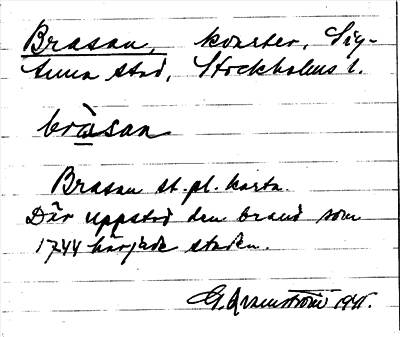 Brasan, kvarter, Sig-
tuna stad, Stockholms l.
bràsan
Brasan st.pl. karta.
Där uppstod den brand som
1744 härjade staden.
G. Qvarnström